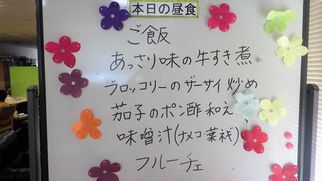 本日の昼食
ご飯
あっさり味の牛すき煮
ブロッコリーのザーサイ炒め
茄子のポン酢和え
味噌汁(ナメコ葉残)
フルーチェ